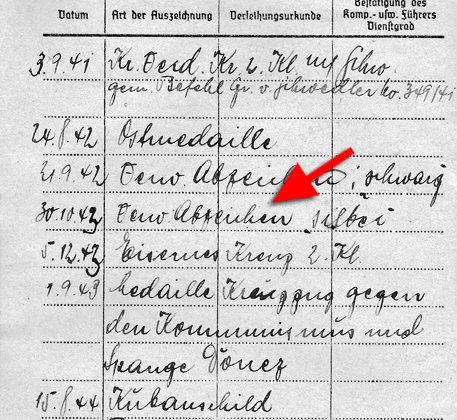 Bestätigung des
Datum Art der Auszeichnung Verleihungsurkunde Komp.- usw. Führers
Dienstgrad
3.9.41 Kr. Verd. Kr. 2. Kl. m/ Schw.
gem. Befehl Gr. v. Schwedler No. 349/41
24.8.42 Ostmedaille
21.9.42 Verw. Abzeichen i. schwarz
30.10.42 Verw Abzeichen silber
5.12.42 Eisernes Kreuz 2. Kl.
1.9.43 Medaille Kreuzzug gegen
den Kommunismus und
Spange Donez
15.8.44 Kubanschild